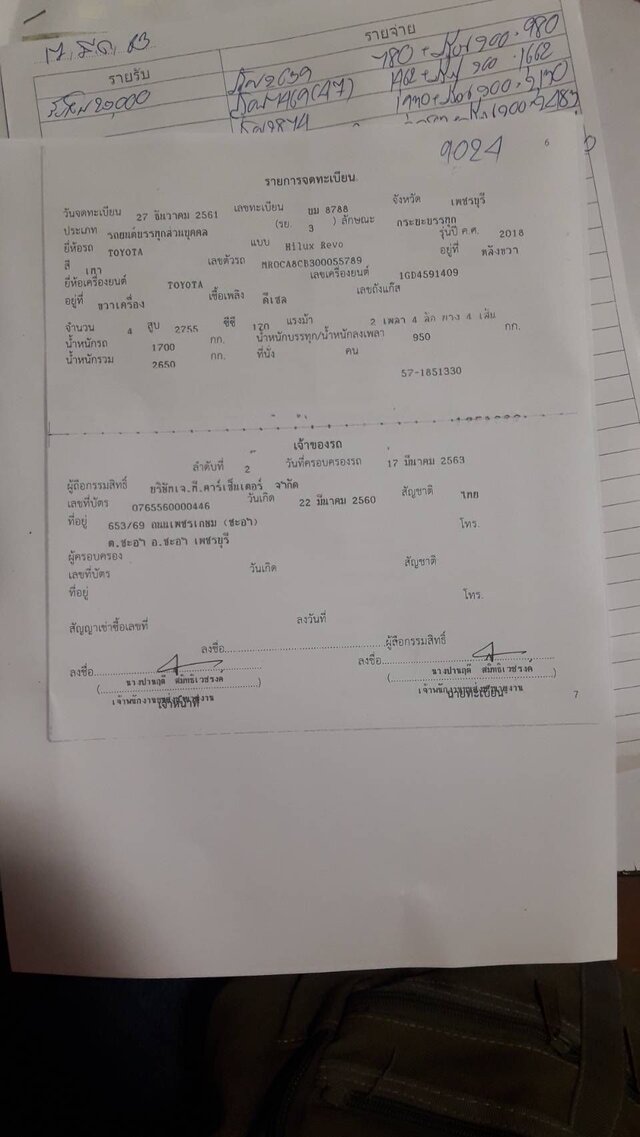 17 มี.ค. 63
รายรับ
รายจ่าย
780 + 200 . 980
1462 + 200 . 1662
9024
6
รายการจดทะเบียน
วันจดทะเบียน 27 ธันวาคม 2561 เลขทะเบียน ขม 8788 จังหวัด เพชรบุรี
ประเภท รถยนต์บรรทุกส่วนบุคคล (รย. 3 ) ลักษณะ กระบะบรรทุก
ยี่ห้อรถ TOYOTA แบบ Hilux Revo รุ่นปี ค.ศ. 2018
สี เทา เลขตัวรถ MR0CA8CB300055789 อยู่ที่ หลังขวา
ยี่ห้อเครื่องยนต์ TOYOTA เลขเครื่องยนต์ 1GD4591409
อยู่ที่ ขวาเครื่อง เชื้อเพลิง ดีเซล เลขถังแก๊ส
จำนวน 4 สูบ 2755 ซีซี 170 แรงม้า 2 เพลา 4 ล้อ ยาง 4 เส้น
น้ำหนักรถ 1700 กก. น้ำหนักบรรทุก/น้ำหนักลงเพลา 950 กก.
น้ำหนักรวม 2650 กก. ที่นั่ง คน
57-1851330
เจ้าของรถ
ลำดับที่ 2 วันที่ครอบครองรถ 17 มีนาคม 2563
ผู้ถือกรรมสิทธิ์ บริษัทเจ.ที.คาร์เซ็นเตอร์ จำกัด
เลขที่บัตร 0765560000446 วันเกิด 22 มีนาคม 2560 สัญชาติ ไทย
ที่อยู่ 653/69 ถนนเพชรเกษม (ชะอำ) โทร.
ต.ชะอำ อ.ชะอำ เพชรบุรี
ผู้ครอบครอง
เลขที่บัตร วันเกิด สัญชาติ
ที่อยู่ โทร.
สัญญาเช่าซื้อเลขที่ ลงวันที่
ลงชื่อ ผู้ถือกรรมสิทธิ์
ลงชื่อ ลงชื่อ
เจ้าหน้าที่ นายทะเบียน
7